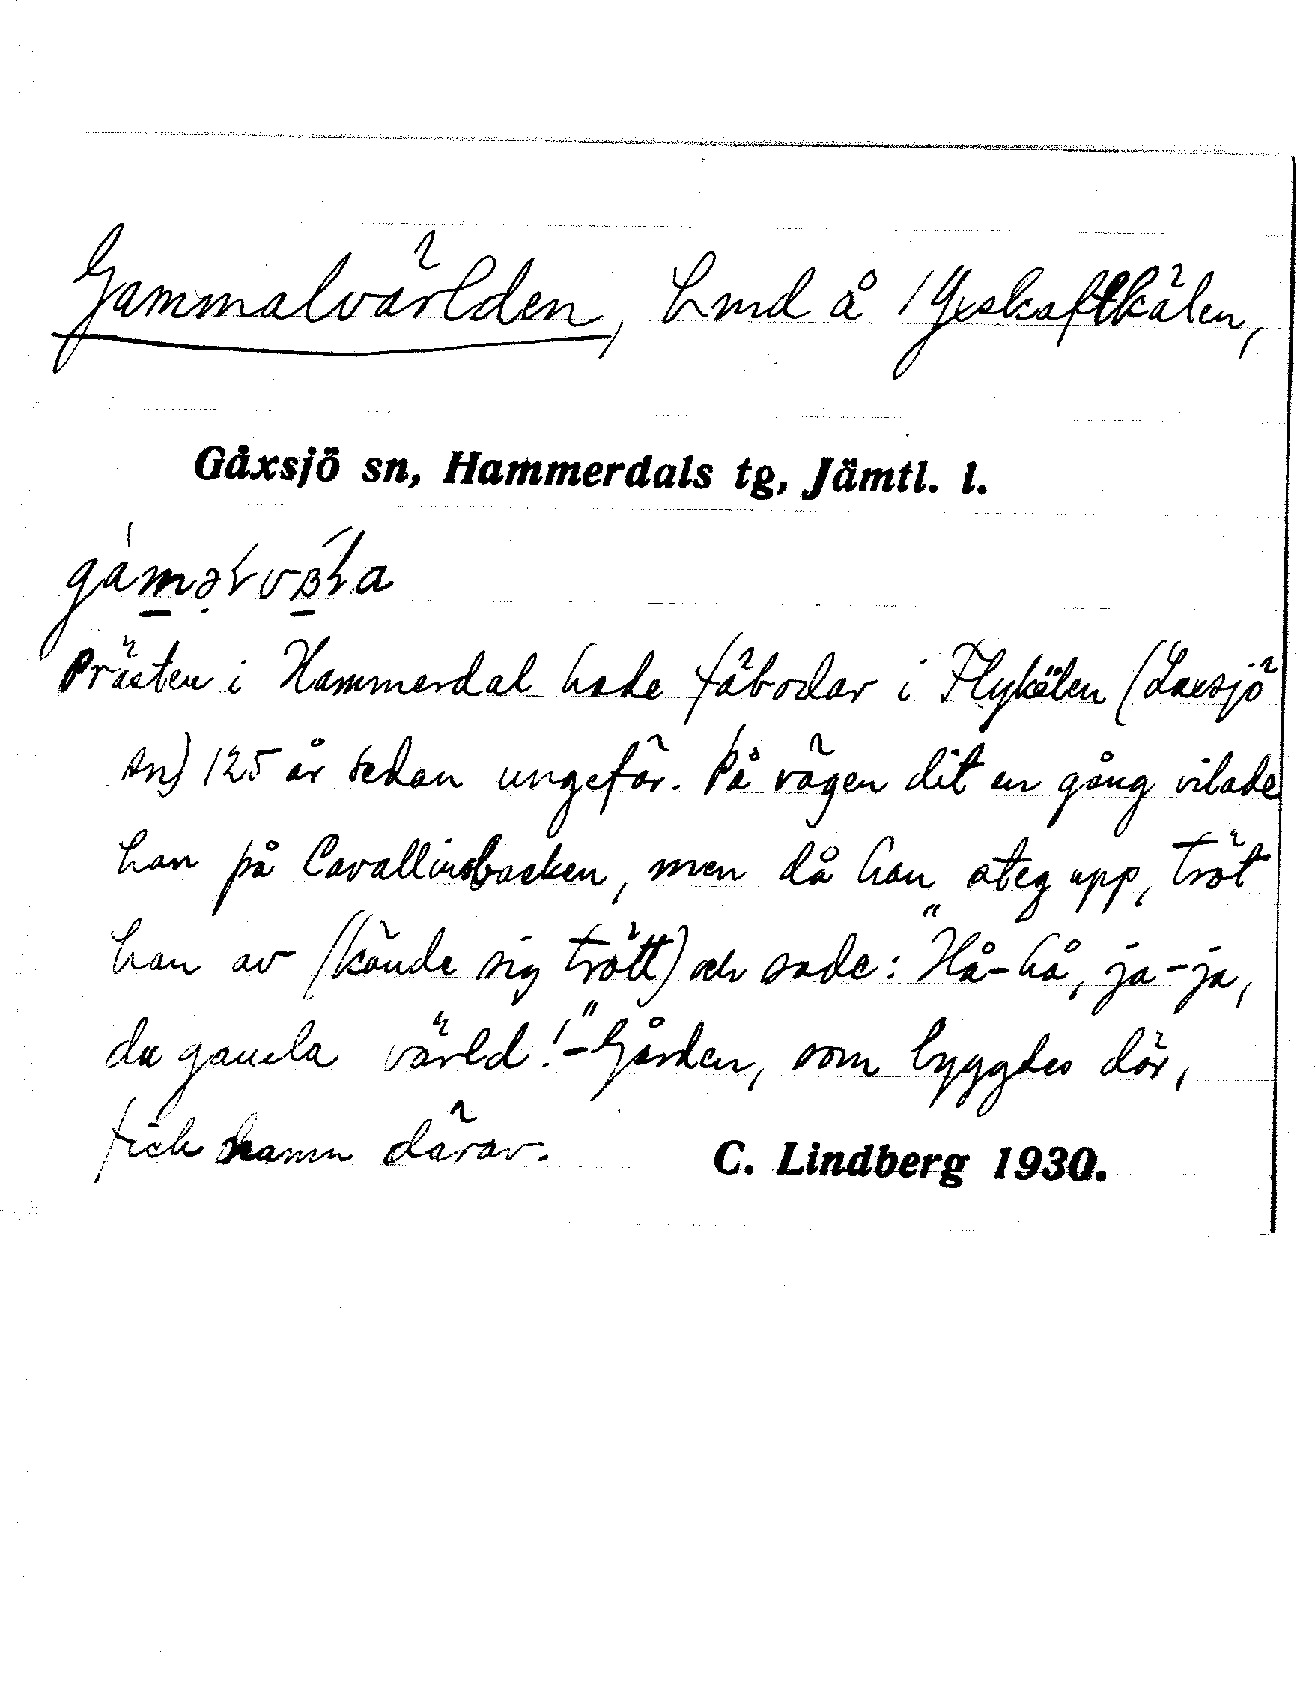 Gammalvärlden, hmd å 1 Yeskaftkälen,
Gåxsjö sn, Hammerdals tg, Jämtl. l.
Prästen i Hammerdal hade fäbodar i Flykälen (Laxsjö
sn) 125 år sedan ungefär. På vägen dit en gång vilade
han på Cavallinsbacken, men då han steg upp, tröt
han av (kände sig trött) och sade: "Hå-hå, ja-ja,
du gamla värld!" - Gården, som byggdes där,
fick namn därav.
C. Lindberg 1930.